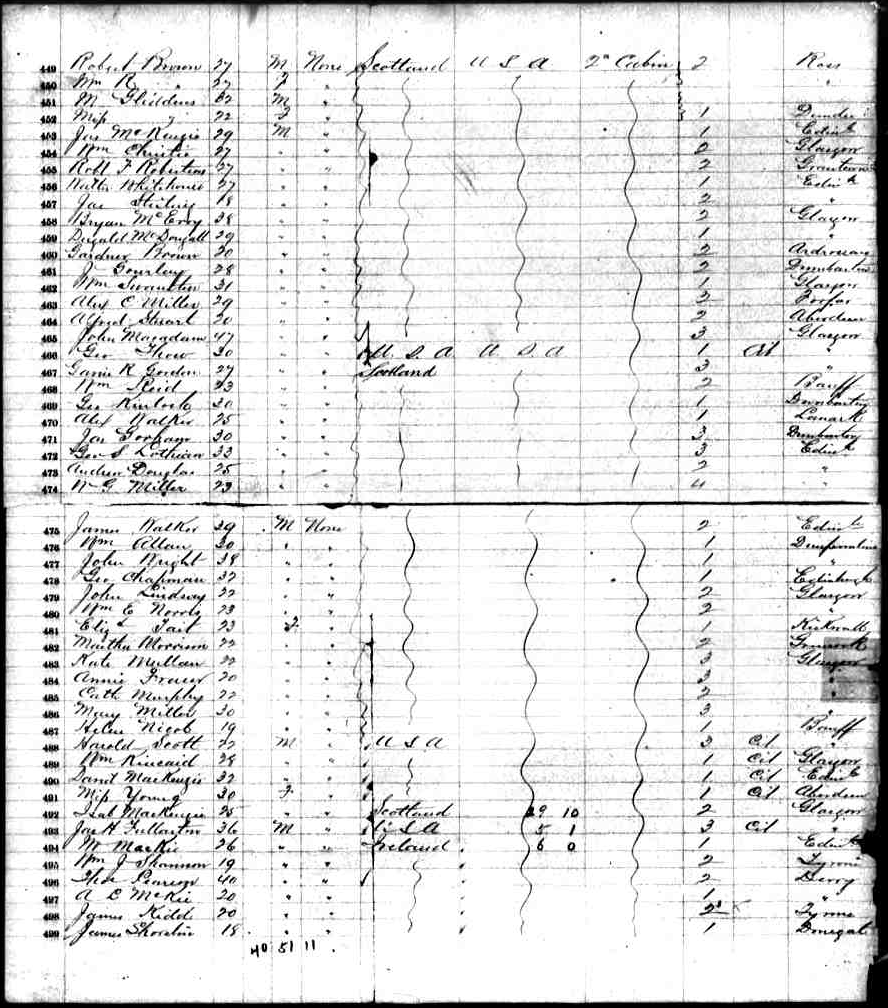 449 Robert Brown 27 M None Scotland U S A 2" Cabin 2 Ross
450 Wm R " 27 F "
451 M Gliddens 32 M "
452 Miss " 22 F " 1 Dundee
453 Jas McKenzie 29 M " 1 Edinb
454 Wm Christie 27 " " 2 Glasgow
455 Robt F Robertson 27 " " 2
456 Whitehouse 27 " " 1 Edinb
457 Jas Stirling 18 " " 2 "
458 Bryan McErvy 38 " " 2 Glasgow
459 Dugald McDougall 29 " " 1 "
460 Gardner Brown 20 " " 2 Ardrossan
461 J Gourlay 28 " " 2 Dumbarton
462 Wm Swanston 31 " " 1 Glasgow
463 Alex C Miller 29 " " 2 Forfar
464 Alfred Stuart 20 " " 2 Aberdeen
465 John Macadam 47 " " 3 Glasgow
466 Geo Thow 30 " " U. S. A U S A 1 Cit "
467 K Gordon 27 " " Scotland 3 "
468 Wm Reid 23 " " 2 Banff
469 Geo Kinlock 30 " " 1 Dumbarton
470 Alex Walker 25 " " 1 Lanark
471 Jas Gorham 30 " " 3 Dumbarton
472 Geo S Lothian 33 " " 3 Edinb
473 Andrew Douglas 25 " " 2 "
474 W G Miller 23 " " 4 "
475 James Walker 39 M None 2 Edinb
476 Wm Allan 30 " " 1 Dunfermline
477 John Wright 38 " " 1 "
478 Geo Chapman 32 " " 1 Edinburgh
479 John Lindsay 22 " " 2 Glasgow
480 Wm E Norris 23 " " 2 "
481 Eliz Tait 23 F " 1 Kirkwall
482 Martha Morrison 22 " " 2
483 Kate Mullan 22 " " 3 Glasgow
484 Annie Fraser 20 " " 3 "
485 Cath Murphy 22 " " 2 "
486 Mary Miller 30 " " 3 "
487 Helen Nicol 19 " " 1 Banff
488 Harold Scott 22 M " U S A 3 Cit "
489 Wm Kincaid 28 " " 1 Cit Glasgow
490 MacKenzie 32 " " 1 Cit Edinb
491 Miss Young 30 F " 1 Cit Aberdeen
492 Isab MacKenzie 25 " " Scotland 29 10 2 Glasgow
493 Jas H Fullarton 36 M " U S A 5 1 3 Cit "
494 W Mackie 26 " " Ireland 6 0 1 Edinb
495 Wm J Shannon 19 " " 2 Tyrone
496 Thos Pearson 40 " " 2 Derry
497 A McKee 20 " " 1 "
498 James Kidd 20 " " 2 Tyrone
499 James 18 " " 1 Donegal
40 51 11